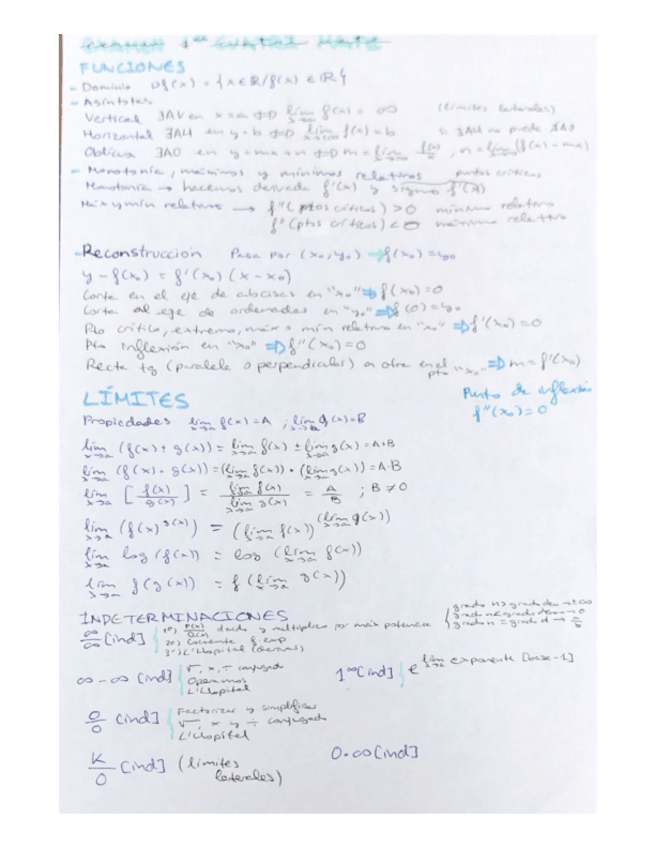 EXAMEN 1er CUATRI MATE
FUNCIONES
- Dominio Df(x) = {x ∈ ℝ/f(x) ∈ ℝ}
- Asíntotas
Vertical ∃AV en x=a ⇔ lim x→a f(x) = ∞ (límites laterales)
Horizontal ∃AH en y=b ⇔ lim x→±∞ f(x)=b si ∃AH no puede ∃AO
Oblicua ∃AO en y=mx+n ⇔ m=lim f(x)/x , n=lim (f(x)-mx)
- Monotonía, máximos y mínimos relativos puntos críticos
Monotonía → hacemos derivada f'(x) y signo f'(x)
Máx y mín relativos → f''(ptos críticos) > 0 mínimo relativo
f''(ptos críticos) < 0 máximo relativo
- Reconstrucción Pasa por (x₀, y₀) ⇒ f(x₀) = y₀
y - f(x₀) = f'(x₀) (x-x₀)
Corta en el eje de abcisas en "x₀" ⇒ f(x₀)=0
Corta al eje de ordenadas en "y₀" ⇒ f(0)=y₀
Pto crítico, extremo, máx o mín relativo en "x₀" ⇒ f'(x₀)=0
Pto inflexión en "x₀" ⇒ f''(x₀)=0
Recta tg (paralela o perpendicular) a otra en el pto "x₀" ⇒ m=f'(x₀)
Punto de inflexión
f''(x₀)=0
LÍMITES
Propiedades lim x→a f(x)=A ; lim x→a g(x)=B
lim x→a (f(x) ± g(x)) = lim x→a f(x) ± lim x→a g(x) = A+B
lim x→a (f(x) · g(x)) = (lim x→a f(x)) · (lim x→a g(x)) = A·B
lim x→a [f(x)/g(x)] = lim x→a f(x) / lim x→a g(x) = A/B ; B ≠ 0
lim x→a (f(x)^g(x)) = (lim x→a f(x))^(lim x→a g(x))
lim x→a log (f(x)) = log (lim x→a f(x))
lim x→a f(g(x)) = f (lim x→a g(x))
INDETERMINACIONES
∞/∞ [ind] 1º) P(x)/Q(x) divido y multiplico por máx potencia
grado n > grado den → ±∞
grado n < grado den → 0
grado n = grado d →
2º)
3º) L'Hopital (derivar)
∞ - ∞ [ind] √, x, ÷ conjugado
Operamos
L'Hopital
1^∞ [ind] e^lim x→a exponente [base-1]
0/0 [ind] Factorizar y simplificar
√, x y ÷ conjugado
L'Hopital
K/0 [ind] (límites laterales)
0·∞ [ind]